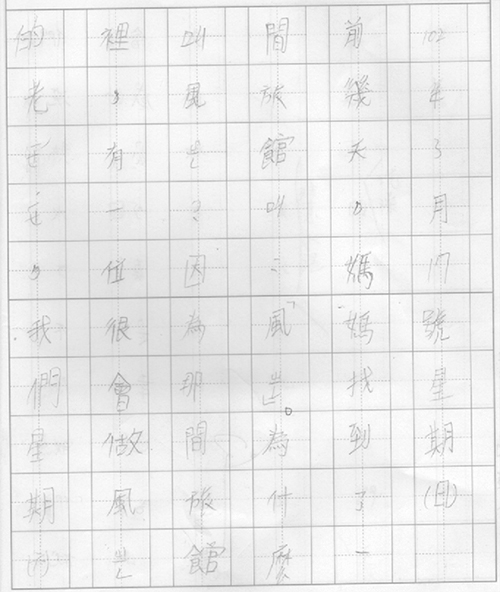 102年3月17號星期(日)
前幾天,媽媽找到了一
間旅館叫:「風ㄓㄥ」。為什麼
叫風ㄓㄥ?因為那間旅館
裡,有一位很會做風ㄓㄥ
的老,我們星期(六)